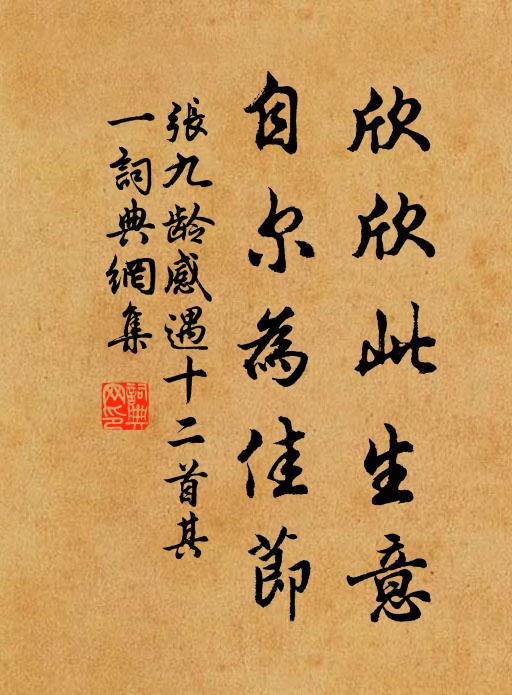 欣欣此生意
自尔為佳節
張九龄感遇十二首其
一詞典網集
詞典
网印